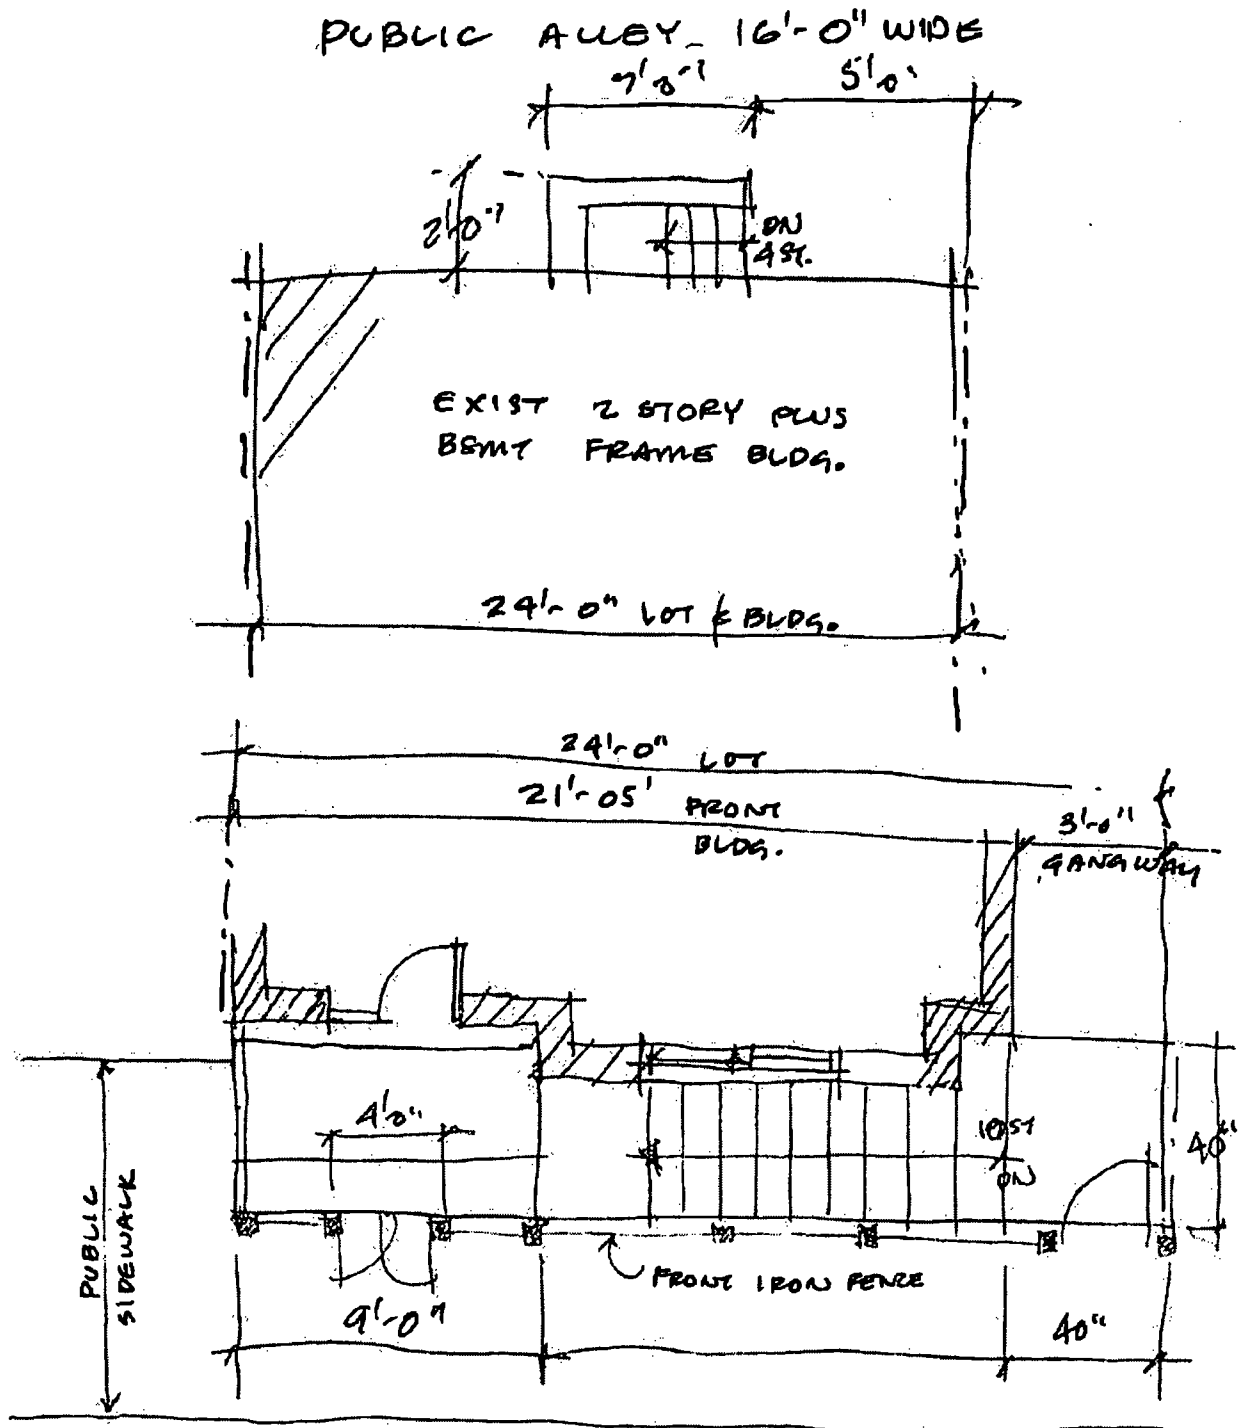 PUBLIC ALLEY 16'-0" WIDE
5'0"
2'-0"
DN
4 ST.
EXIST 2 STORY PLUS
BSMT FRAME BLDG.
24'-0" LOT & BLDG.
24'-0" LOT
21'-05' FRONT
BLDG.
3'-0"
GANGWAY
4'0"
10 ST
DN
40"
PUBLIC
SIDEWALK
FRONT IRON FENCE
9'-0"
40"